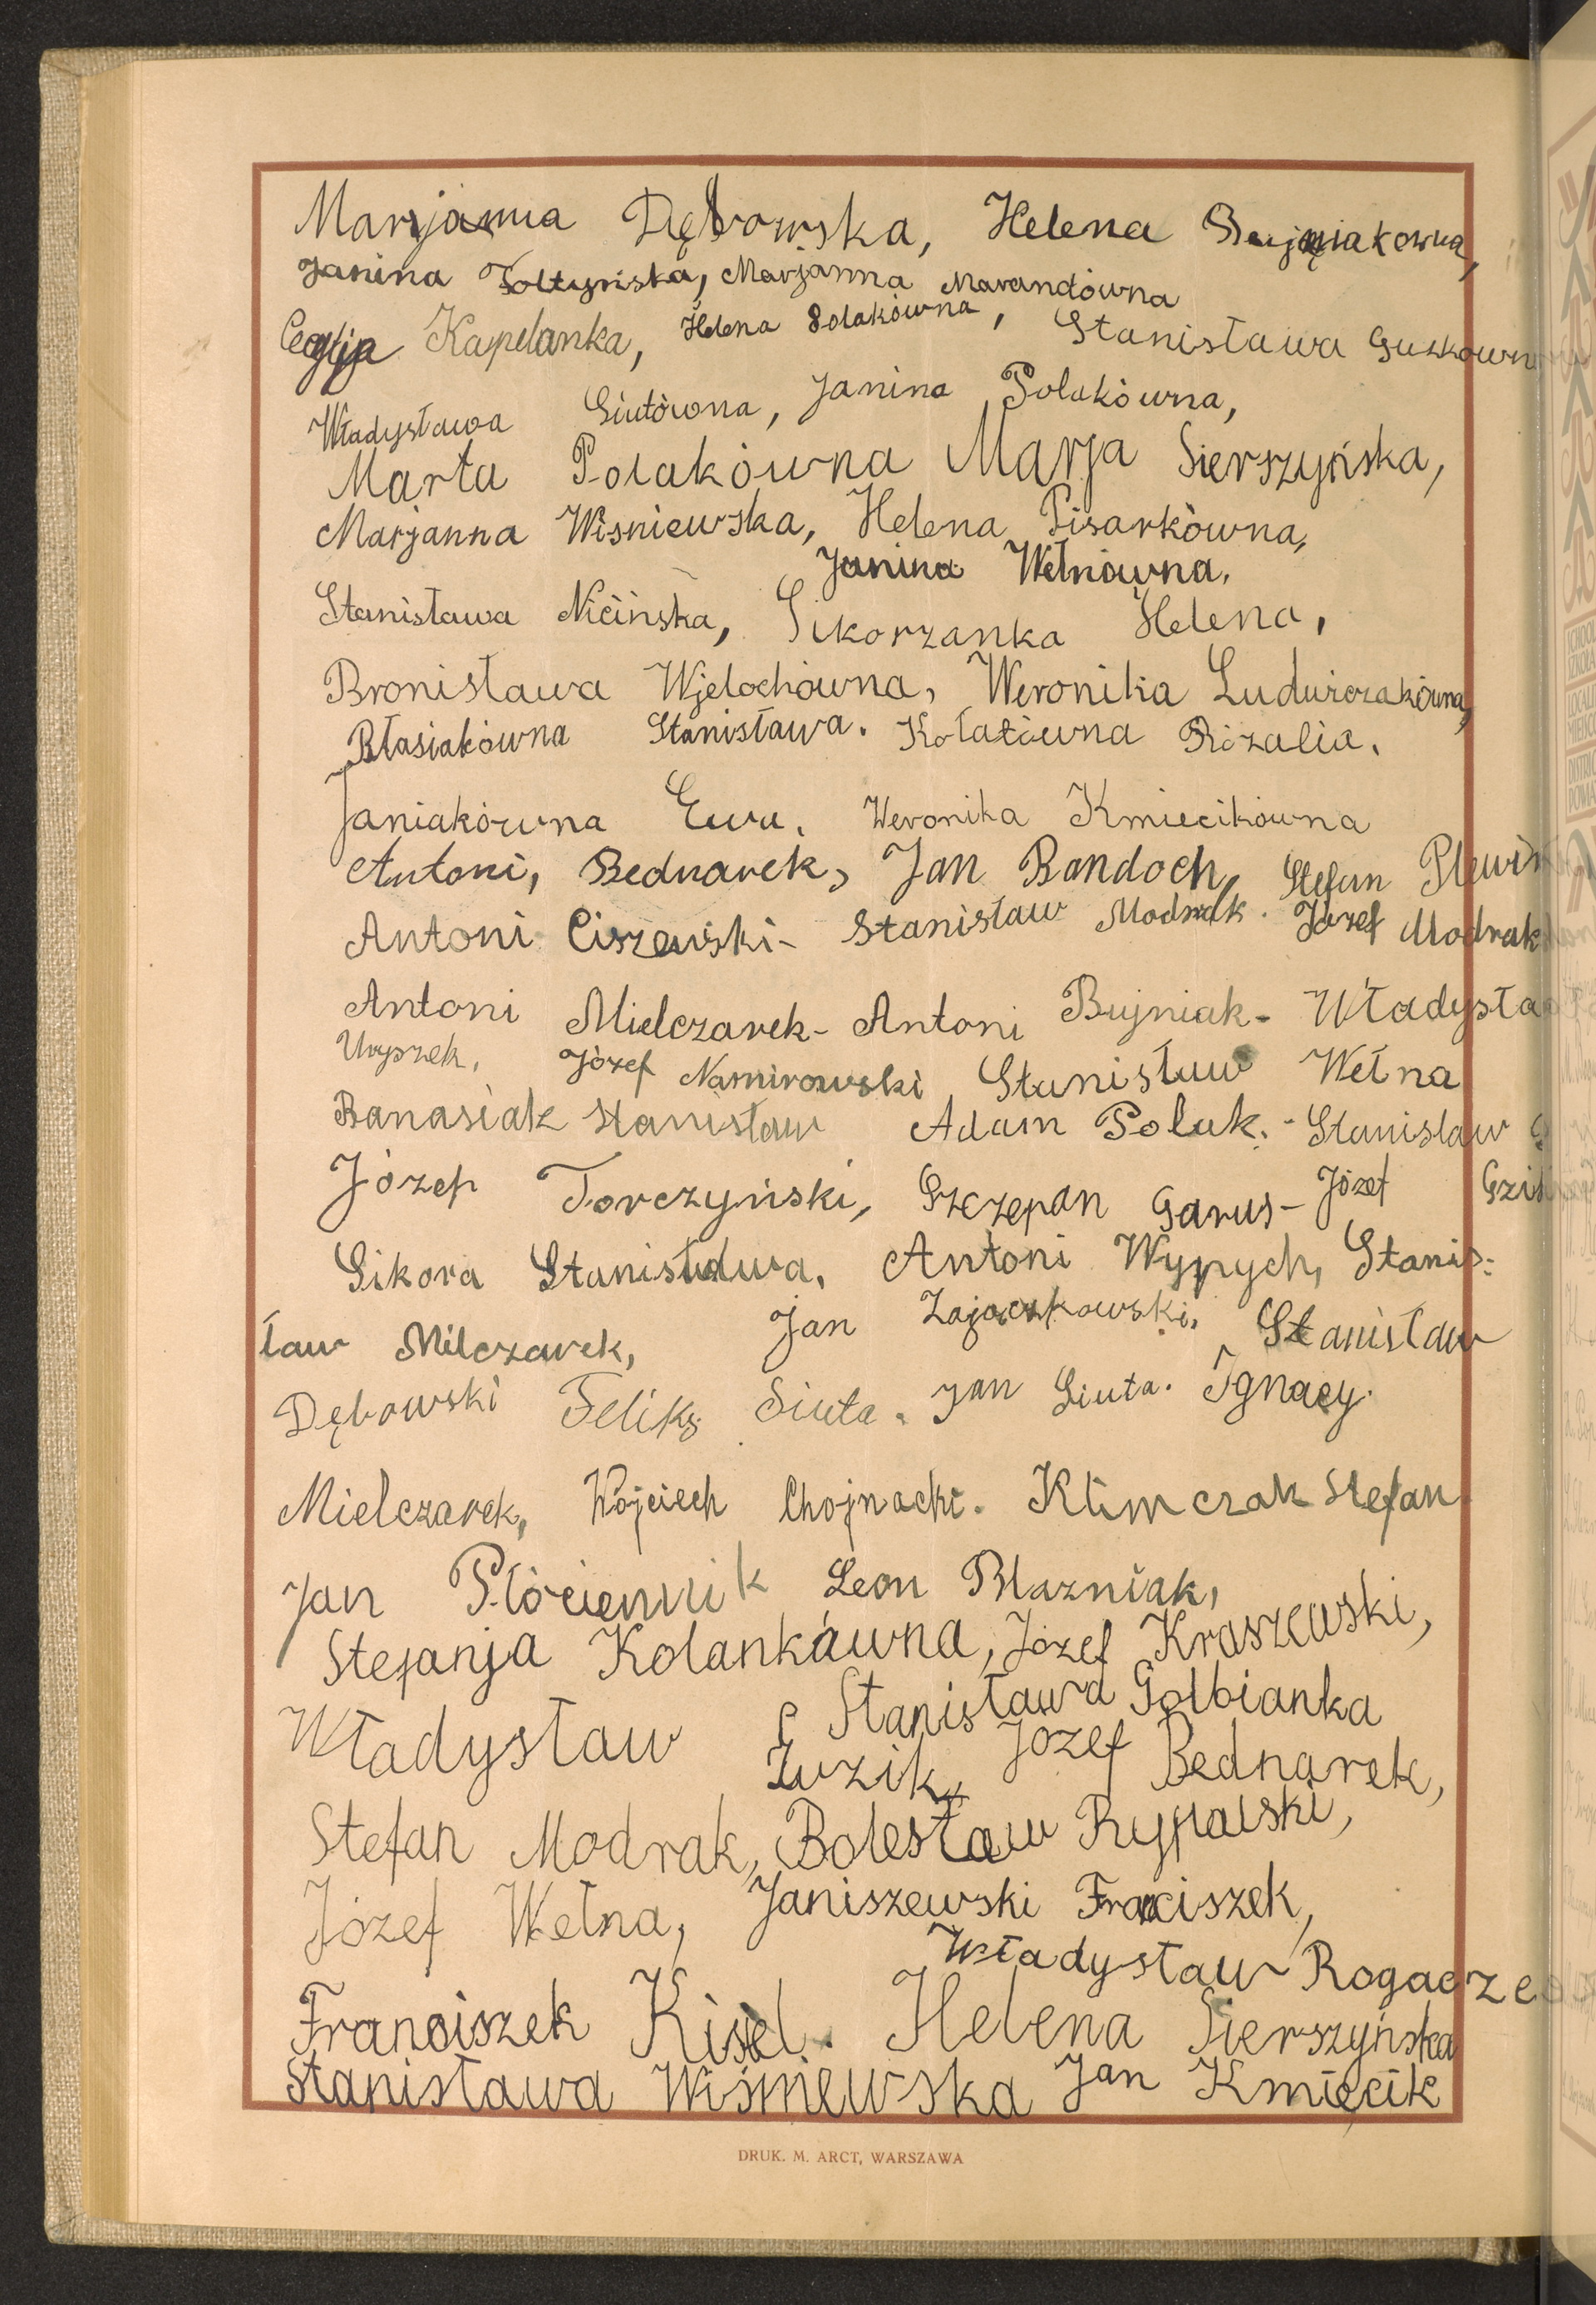 Marjanna Dębowska, Helena Bujniakówna,
Janina Foltyńska, Marjanna Marandówna
Kapelanka, Helena Polakówna, Stanisława
Władysława Siutówna, Janina Polakówna,
Marta Polakówna Marja Sierszyńska,
Marjanna Wisniewska, Helena Pisarkówna,
Janina Wełnówna.
Stanisława Nicińska, Sikorzanka Helena,
Bronisława Wjelochówna, Weronika Ludwiczakówna,
Błasiakówna Stanisława. Kołatówna Rózalia.
Janiakówna Ewa. Weronika Kmiecikówna
Antoni, Bednarek, Jan Bandoch, Stefan
Antoni Ciszewski - Stanisław Modrak. Józef Modrak
Antoni Mielczarek - Antoni Bujniak - Władysła
Józef Namirowski Stanisław Wełna
Banasiak Stanisław Adam Polak. - Stanislaw
Józef Torczyński, Szczepan Garus - Józef
Sikora Stanisława, Antoni Wypych, Stanis-
ław Milczarek, Jan Zajączkowski, Stanisław
Dębowski Feliks Siuta. Jan Siuta. Ignacy
Mielczarek, Wojciech Chojnacki. Klimczak Stefan
Jan Płóciennik Leon Blazniak,
Stefanja Kolankówna, Józef Kraszewski,
Stanisława Golbianka
Władysław Luzik, Józef Bednarek,
Stefan Modrak, Bolesław Rypalski,
Józef Wełna, Janiszewski Franciszek,
Władysław Rogacze
Franciszek Kisiel. Helena Sierszyńska
Stanisława Wiśniewska Jan Kmiecik
DRUK. M. ARCT, WARSZAWA